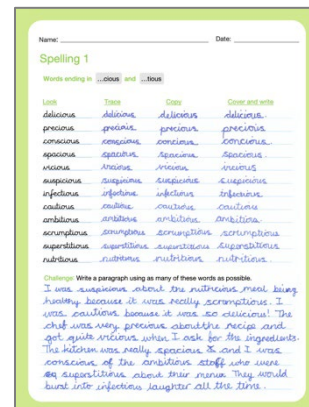 Name: Date:
Spelling 1
Words ending in ...cious and ...tious
Look Trace Copy Cover and write
delicious delicious delicious delicious.
precious precious precious precious
conscious conscious concious concious.
spacious spacious spacious spacious.
vicious vicious vicious vicious
suspicious suspicious suspicious suspicious
infectious infectious infectious infectious.
cautious cautious cautious cautious
ambitious ambitious ambitious ambitious
scrumptious scrumptious scrumptious scrumptious
superstitious superstitious superstitious superstitious
nutritious nutritious nutritious nutritious.
Challenge: Write a paragraph using as many of these words as possible.
I was suspicious about the nutricious meal being
healthy because it was really scrumptious. I
was cautious because it was so delicious! The
chef was very precious about the recipe and
got quite vicious when I ask for the ingredients.
The kitchen was really spacious & and I was
conscious of the ambitious staff who were
superstitious about their menu. They would
burst into infectious laughter all the time.